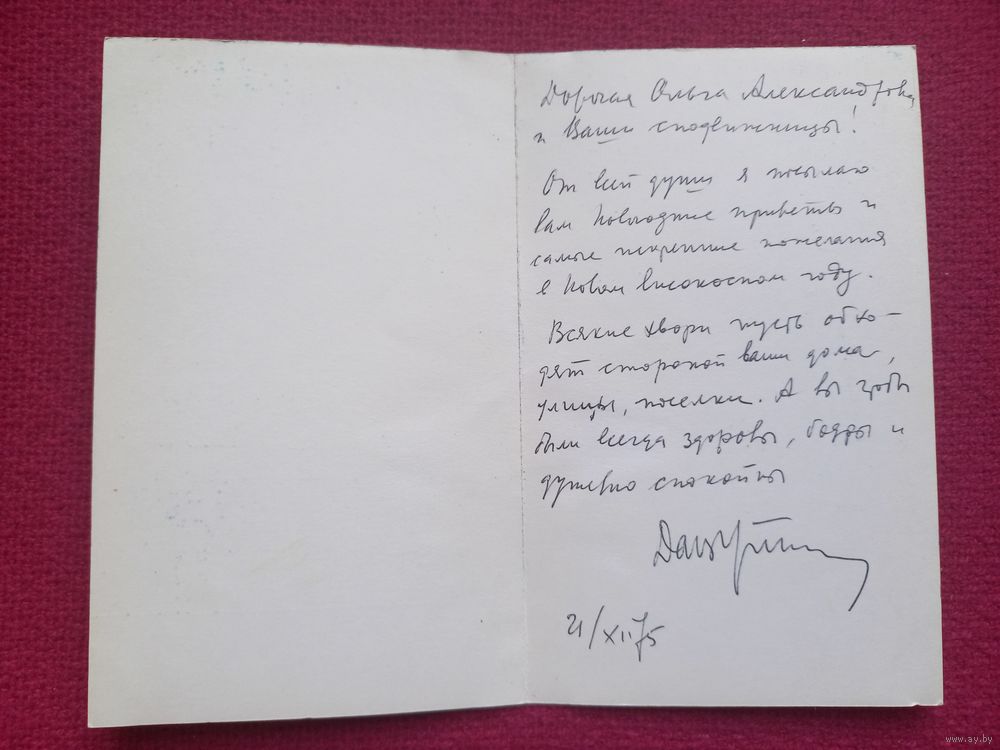 Дорогая Ольга Александровна
и Ваши сподвижницы!
От всей души я посылаю
вам новогодние приветы и
самые искренние пожелания
в Новом високосном году.
Всякие хвори пусть обхо-
дят стороной ваши дома,
улицы, поселки. А вы чтобы
были всегда здоровы, бодры и
душевно спокойны
21/XII 75
www.ay.by